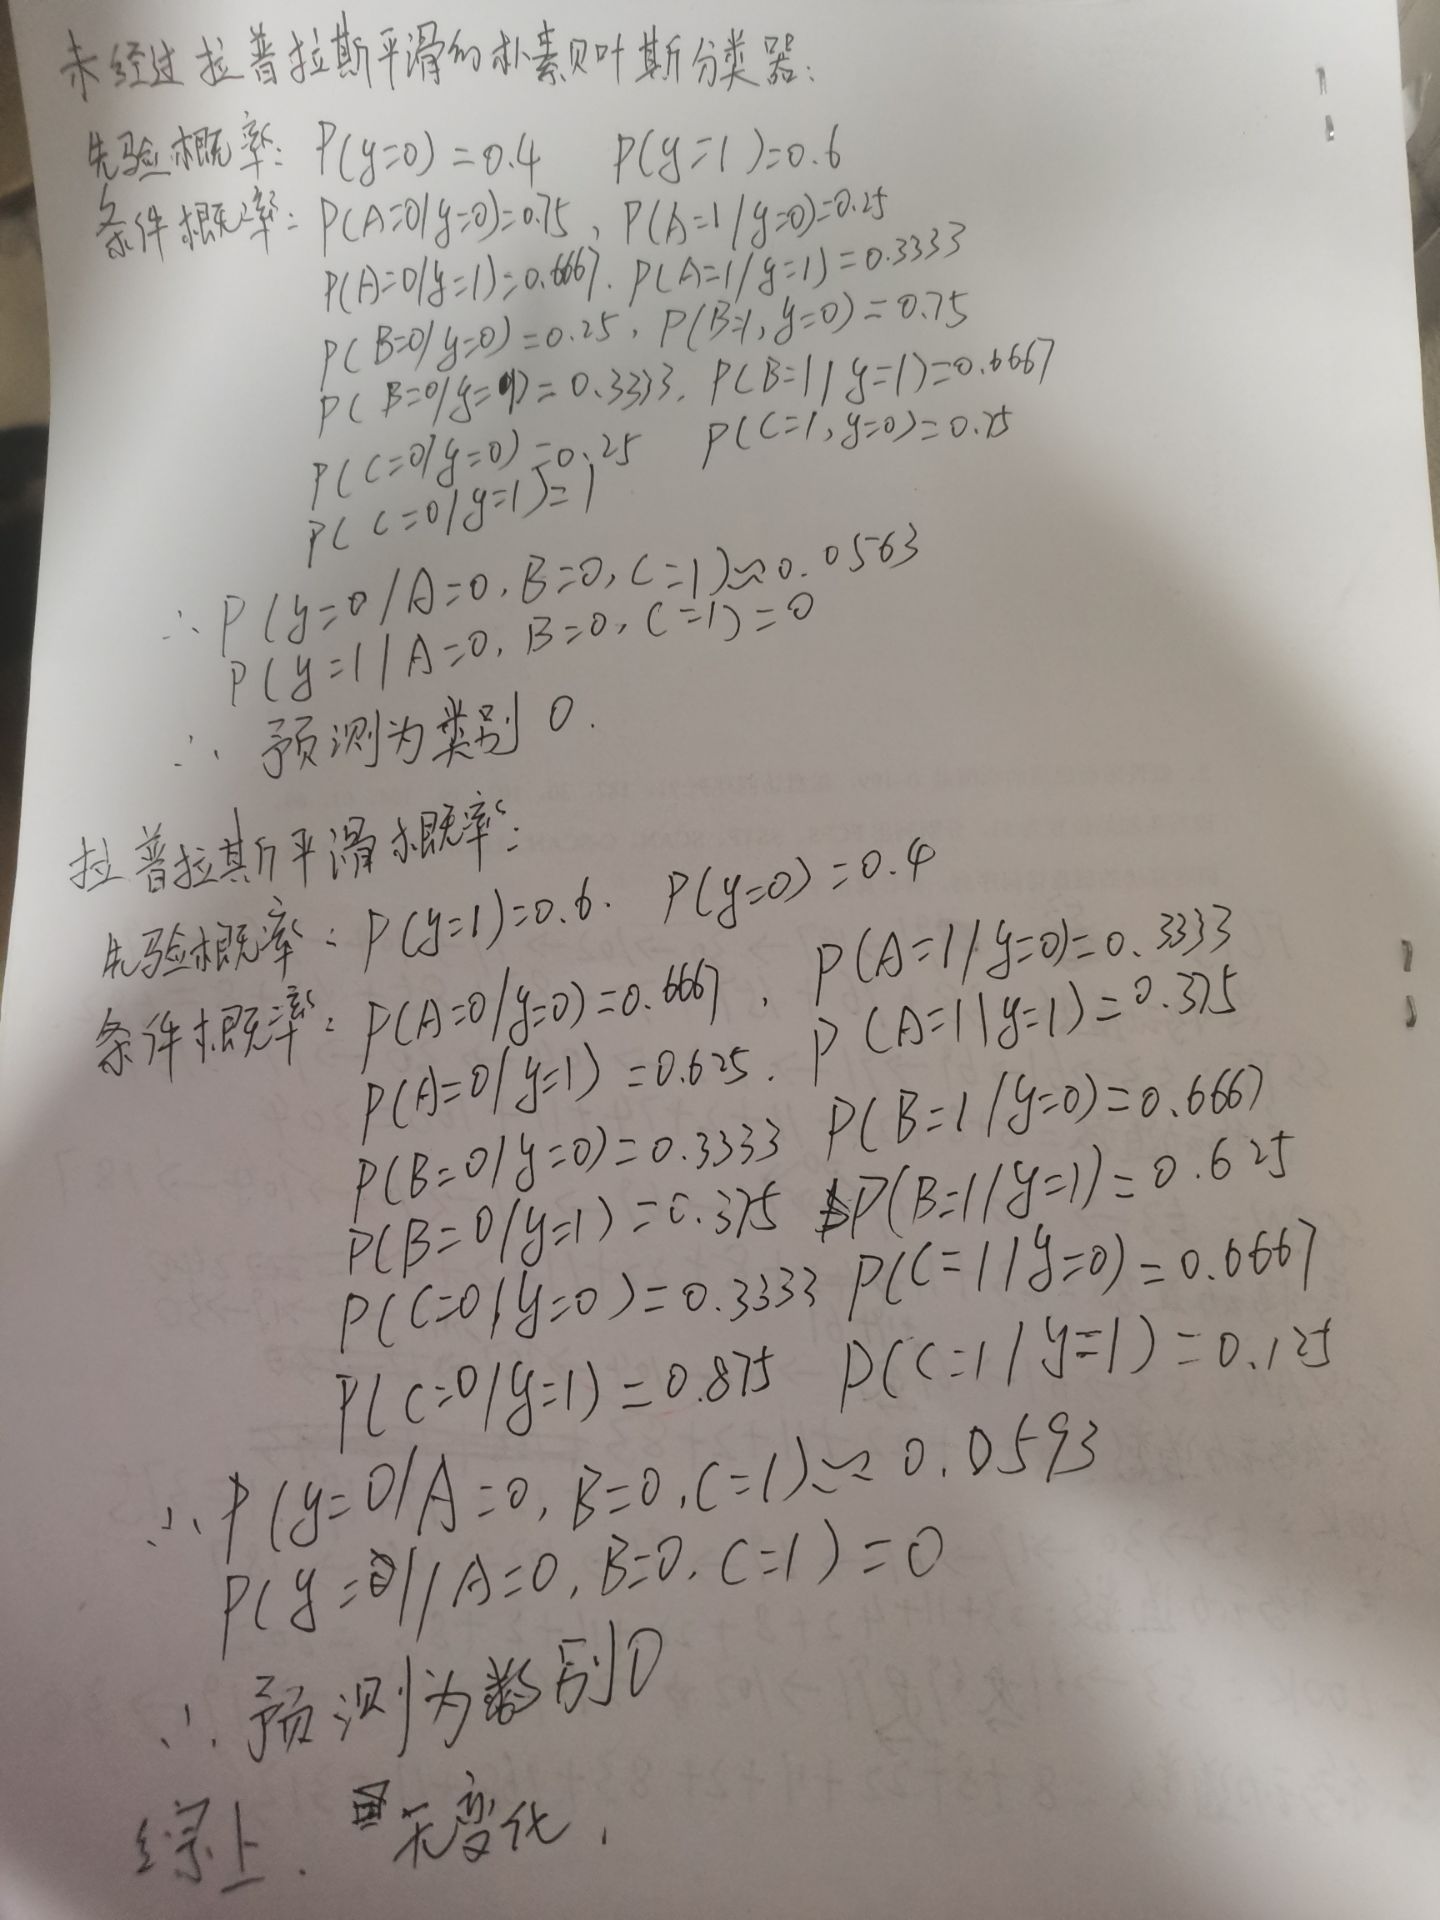 未经过拉普拉斯平滑的朴素贝叶斯分类器:
先验概率: P(y=0)=0.4 P(y=1)=0.6
条件概率: P(A=0/y=0)=0.75, P(A=1/y=0)=0.25
P(A=0/y=1)=0.6667. P(A=1/y=1)=0.3333
P(B=0/y=0)=0.25, P(B=1,y=0)=0.75
P(B=0/y=1)=0.3333, P(B=1/y=1)=0.6667
P(C=0/y=0)=0.25 P(C=1,y=0)=0.75
P(C=0/y=1)=1
∴ P(y=0/A=0,B=0,C=1)≈0.0563
P(y=1/A=0,B=0,C=1)=0
∴ 预测为类别0.
拉普拉斯平滑概率:
先验概率: P(y=1)=0.6. P(y=0)=0.4
条件概率: P(A=0/y=0)=0.6667, P(A=1/y=0)=0.3333
P(A=0/y=1)=0.625. P(A=1/y=1)=0.375
P(B=0/y=0)=0.3333 P(B=1/y=0)=0.6667
P(B=0/y=1)=0.375 P(B=1/y=1)=0.625
P(C=0/y=0)=0.3333 P(C=1/y=0)=0.6667
P(C=0/y=1)=0.875 P(C=1/y=1)=0.125
∴ P(y=0/A=0,B=0,C=1)≈0.0593
P(y=1/A=0,B=0,C=1)=0
∴ 预测为类别0
综上. 无变化.